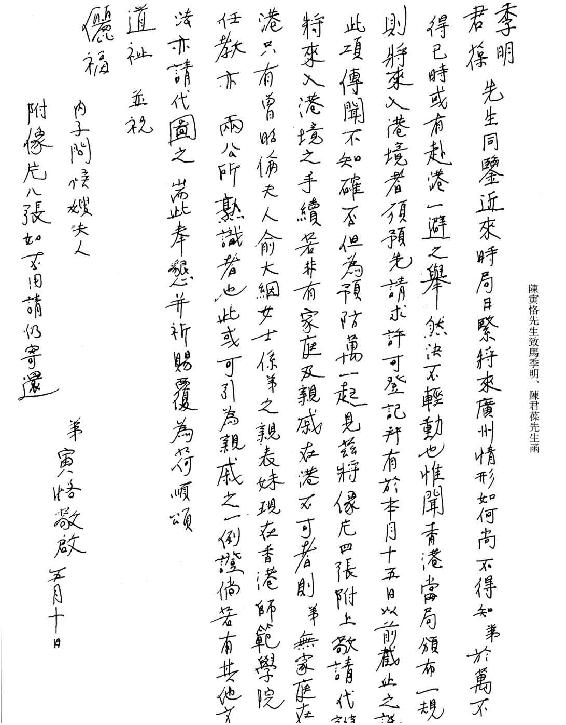 季明
君葆 先生同鑒近來時局日緊將來廣州情形如何尚不得知弟於萬不
得已時或有赴港一避之舉然決不輕動也惟聞香港當局頒布一規
則將來入港境者須預先請求許可登記并有於本月十五日以前截止之說
此項傳聞不知確否但為預防萬一起見茲將像片四張附上敬請代
將來入港境之手續若非有家庭及親戚在港不可者則弟無家庭在
港只有曾昭倫夫人俞大絪女士係弟之親表妹現在香港師範學院
任教亦兩公所熟識者也此或可引為親戚之一例證倘若有其他方
法亦請代圖之耑此奉懇并祈賜覆為荷順頌
道祉並祝
儷福
內子問候嫂夫人
附像片八張如不用請仍寄還
弟寅恪敬啟五月十日
陳寅恪先生致馬季明、陳君葆先生函